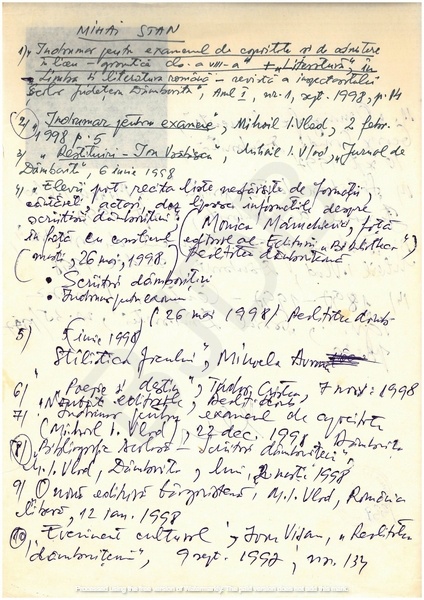 MIHAI STAN
1) "Îndrumar pentru examenul de capacitate și de admitere
în liceu - gramatică cls. a VIII-a" + "Literatură", în
"Limba și literatura română - revistă a inspectoratului
Școlar Județean Dâmbovița", Anul I, nr. 1, sept. 1998, p. 14
2) "Îndrumar pentru examene", Mihail I. Vlad, 2 febr.
1998 p. 5
3) "Restituiri - Ion Voshișcu", Mihail I. Vlad, "Jurnal de
Dâmbovița", 6 iunie 1998
4) "Elevii pot recita liste nesfârșite de formații,
cântăreți, actori, dar lipsesc informațiile despre
scriitorii dâmbovițeni"
(Monica
față în față cu
editorul Editurii "Bibliotheca",
Realitatea dâmbovițeană
marți, 26 mai, 1998.)
• Scriitori dâmbovițeni
• Îndrumar pentru examen
(26 mai 1998) Realitatea dâmb.
5) (iunie 1998)
Stilistica ", Mihaela
6) "Poezie și destin", Tudor Cristea, 7 nov. 1998
"Noutăți editoriale",
7) "Îndrumar pentru examenul de capacitate
(Mihail I. Vlad, 22 dec. 1998, Dâmbovița
8) "Bibliografie școlară - Scriitori dâmbovițeni"
M.I. Vlad, Dâmbovița, luni, 2 martie 1998
9) O nouă editură târgovișteană, M.I. Vlad, România
liberă, 12 ian. 1998
10) "Eveniment cultural", Ion Vișan, "Realitatea
dâmbovițeană", 9 sept. 1997, nr. 134